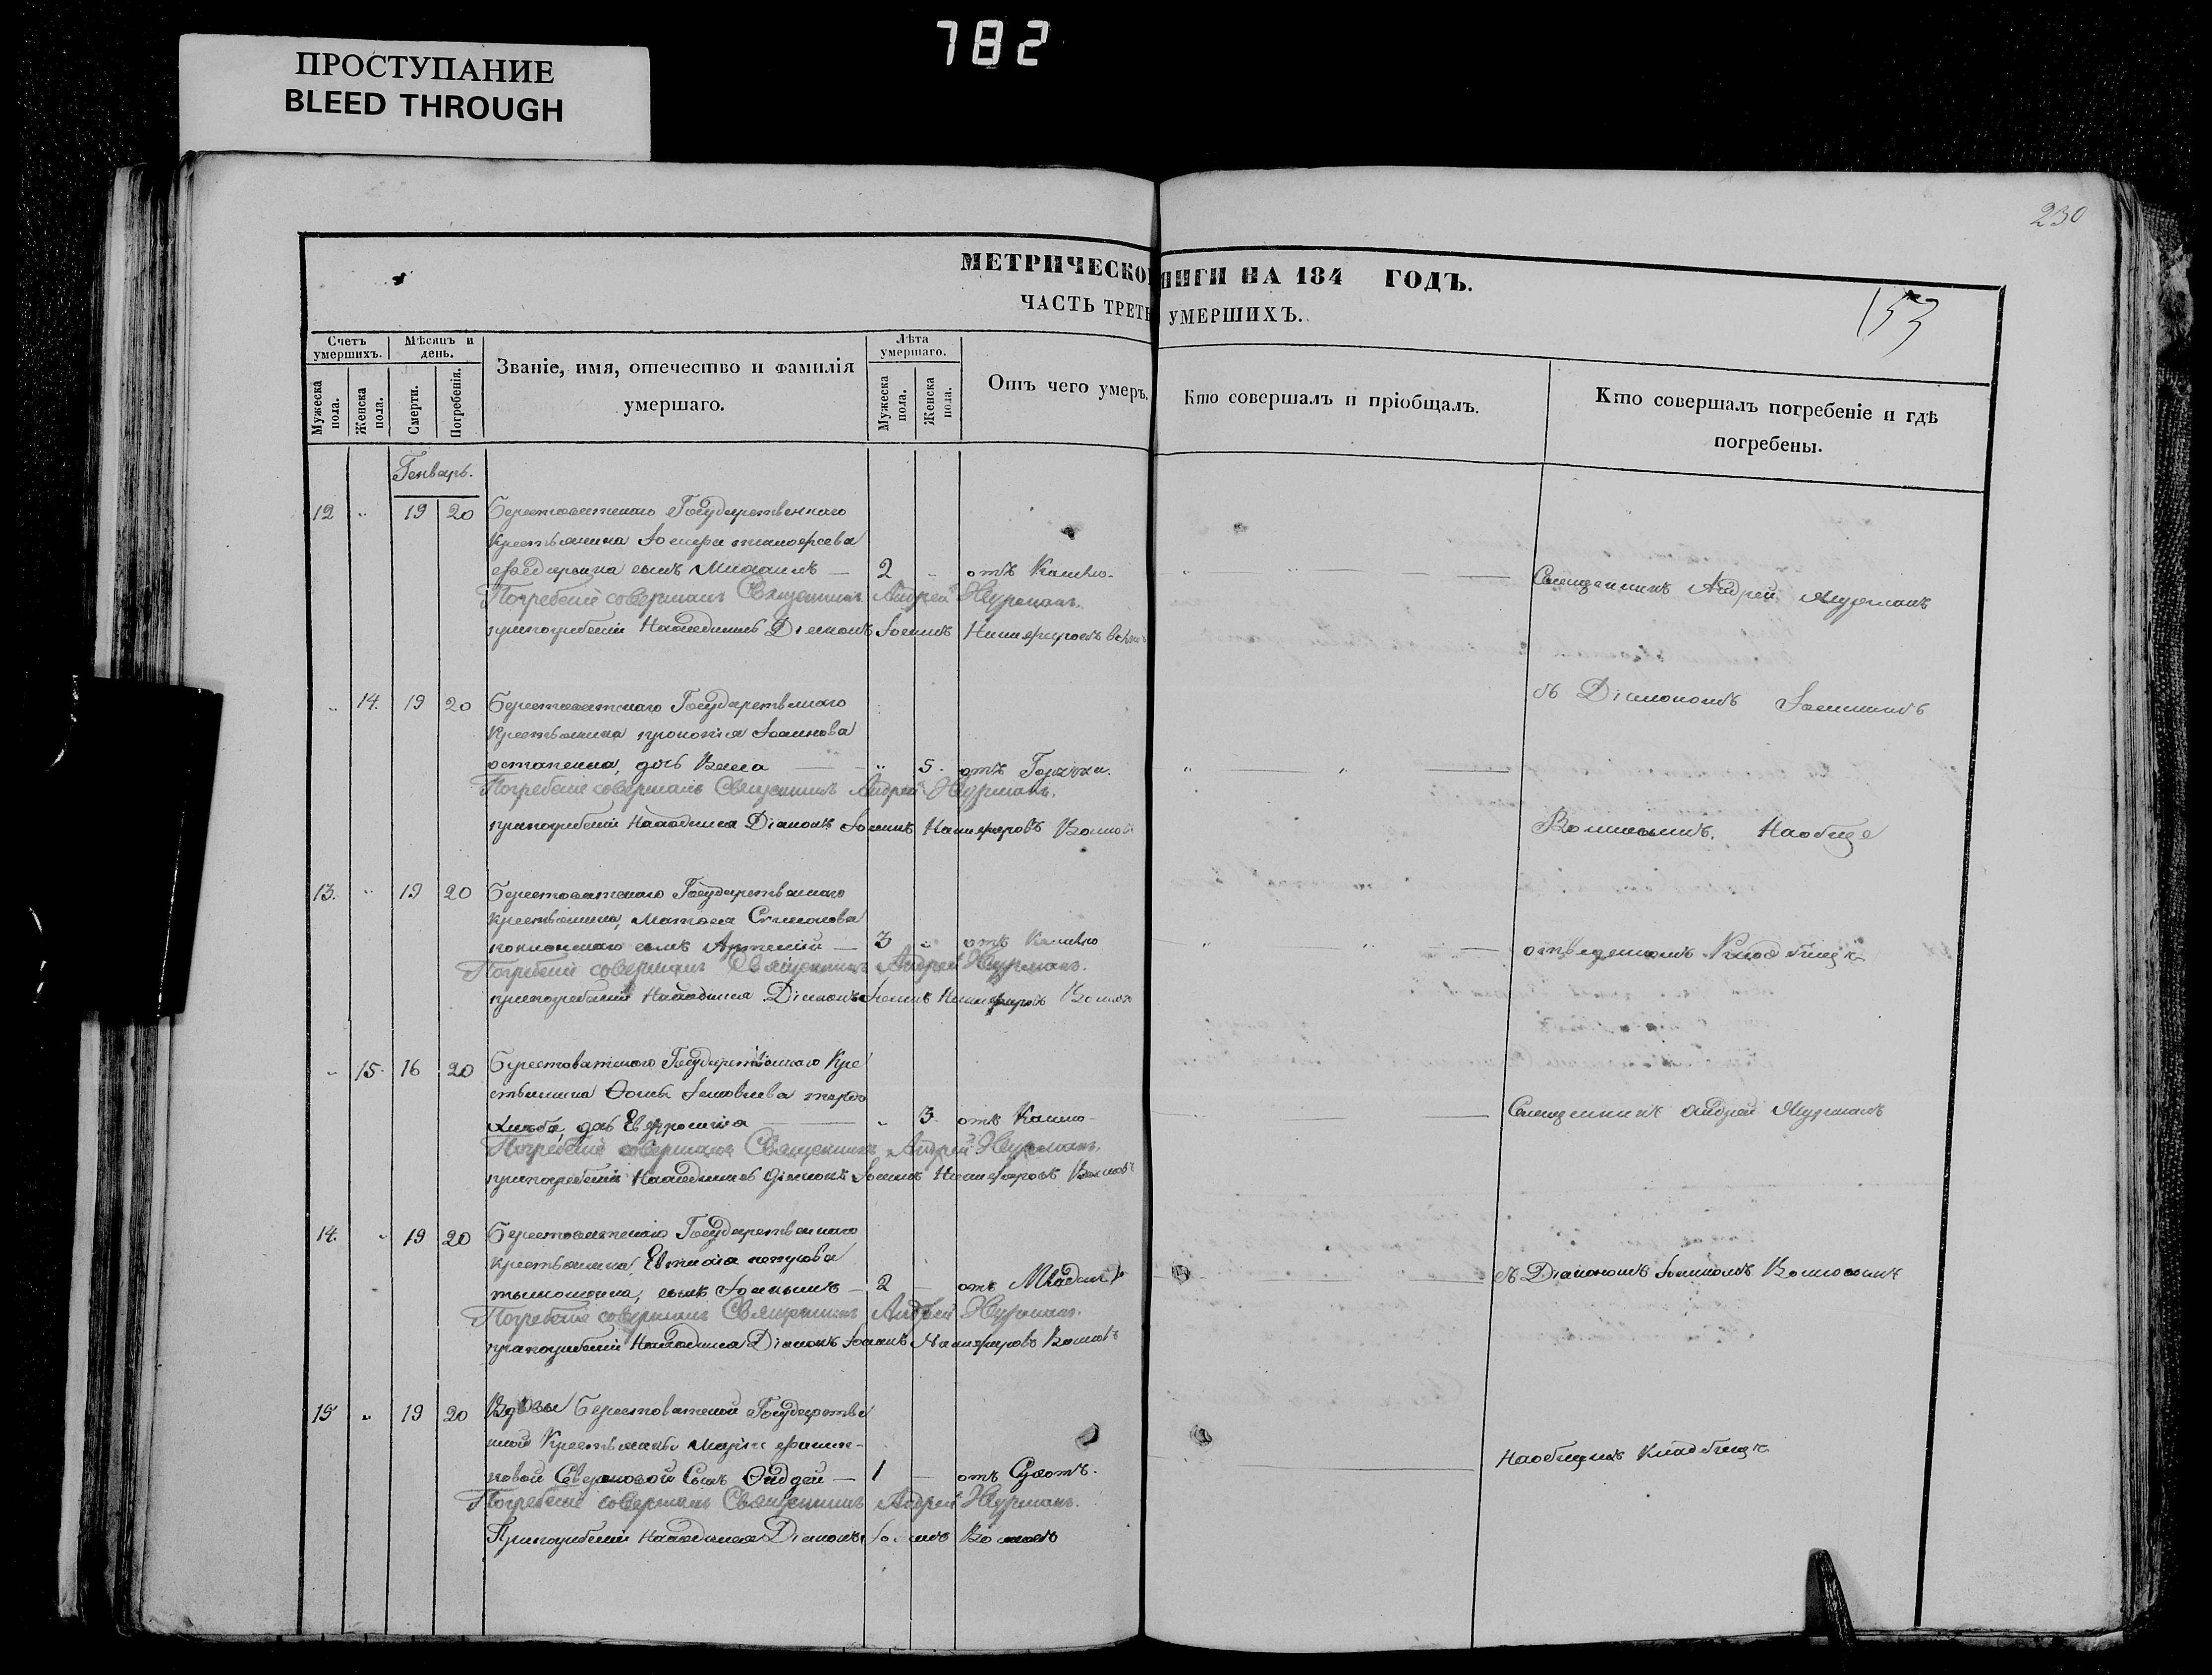 782
ПРОСТУПАНИЕ
BLEED THROUGH
230
153
МЕТРИЧЕСКО НИГИ НА 184 ГОДЪ.
ЧАСТЬ ТРЕТЬ УМЕРШИХЪ.
Счетъ умершихъ.
Мужеска пола.
Женска пола.
Мѣсяцъ и день.
Смерти.
Погребенія.
Званіе, имя, отечество и фамилія
умершаго.
Лѣта умершаго.
Мужеска пола.
Женска пола.
Отъ чего умеръ.
Кто совершалъ и пріобщалъ.
Кто совершалъ погребеніе и гдѣ
погребены.
Генварь.
12 " 19 20 Берестоватского Государственного
Крестьянина
сынъ Михаилъ — 2 " отъ Кашлю
Погребеніе совершалъ Священникъ Андрей Журманъ.
при погребеніи Находился Діаконъ Іоаннъ
Священникъ Андрей Журманъ
" 14. 19 20 Берестоватского Государственного
Крестьянина Прокопія Іоаннова
дочь — " 5. отъ
Погребеніе совершалъ Священникъ Андрей Журманъ.
при погребеніи Находился Діаконъ Іоаннъ
съ Діакономъ Іоанномъ
Наобще
13. " 19 20 Берестоватского Государственного
Крестьянина, Матвея Симонова
сынъ Артемій — 3 " отъ Кашлю
Погребеніе совершалъ Священникъ Андрей Журманъ.
при погребеніи Находился Діаконъ Іоаннъ
отведенномъ Кладбищѣ
" 15. 16 20 Берестоватского Государственного Кре
стьянина Ѳомы
дочь Евфросинія — " 3 отъ Кашлю
Погребеніе совершалъ Священникъ Андрей Журманъ.
при погребеніи Находился Діаконъ Іоаннъ
Священникъ Андрей Журманъ
14. " 19 20 Берестоватского Государственного
Крестьянина, Евтихія
сынъ — 2 — отъ
Погребеніе совершалъ Священникъ Андрей Журманъ.
при погребеніи Находился Діаконъ Іоаннъ
съ Діакономъ Іоанномъ
15 " 19 20 Вдовы Берестоватской Государстве
нной Крестьянки Маріи
Сынъ — 1 — отъ Сухотъ.
Погребеніе совершалъ Священникъ Андрей Журманъ.
При погребеніи Находился Діаконъ
Наобщемъ Кладбищѣ